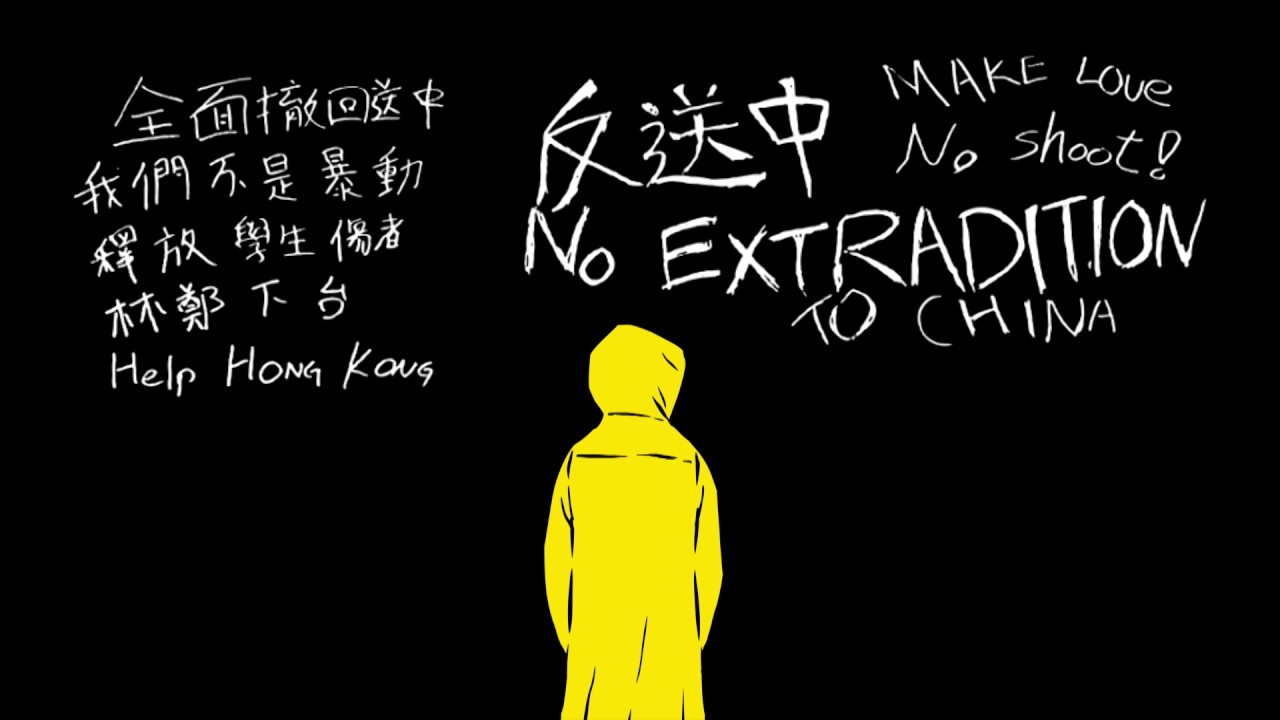 全面撤回送中
我們不是暴動
釋放學生傷者
林鄭下台
Help HONG KONG
反送中
No EXTRADITION
TO CHINA
MAKE LOVE
No shoot!